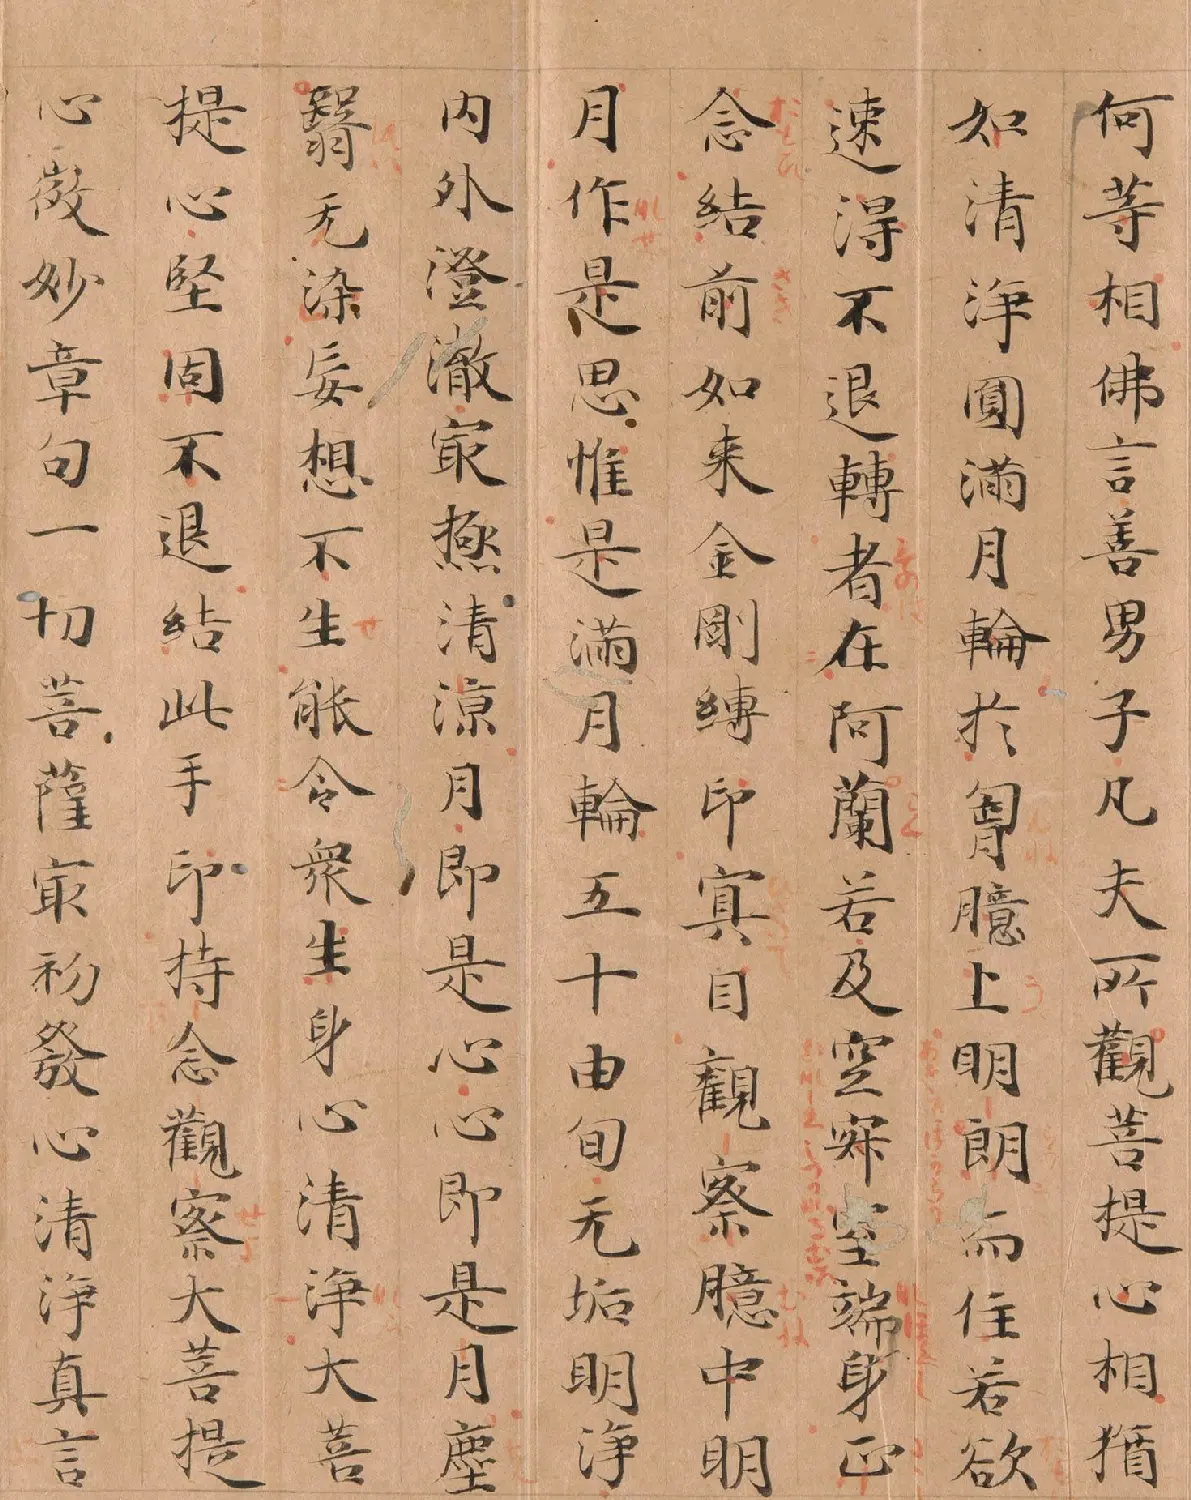 何等相佛言善男子凡夫所觀菩提心相猶
如清淨圓滿月輪於胷臆上明朗而住若欲
速得不退轉者在阿蘭若及空寂室端身正
念結前如来金剛縛印冥目觀察臆中明
月作是思惟是滿月輪五十由旬无垢明淨
内外澄澈㝡極清凉月即是心心即是月塵
翳无染妄想不生能令衆生身心清淨大菩
提心堅固不退結此手印持念觀察大菩提
心微妙章句一切菩薩㝡初發心清淨真言